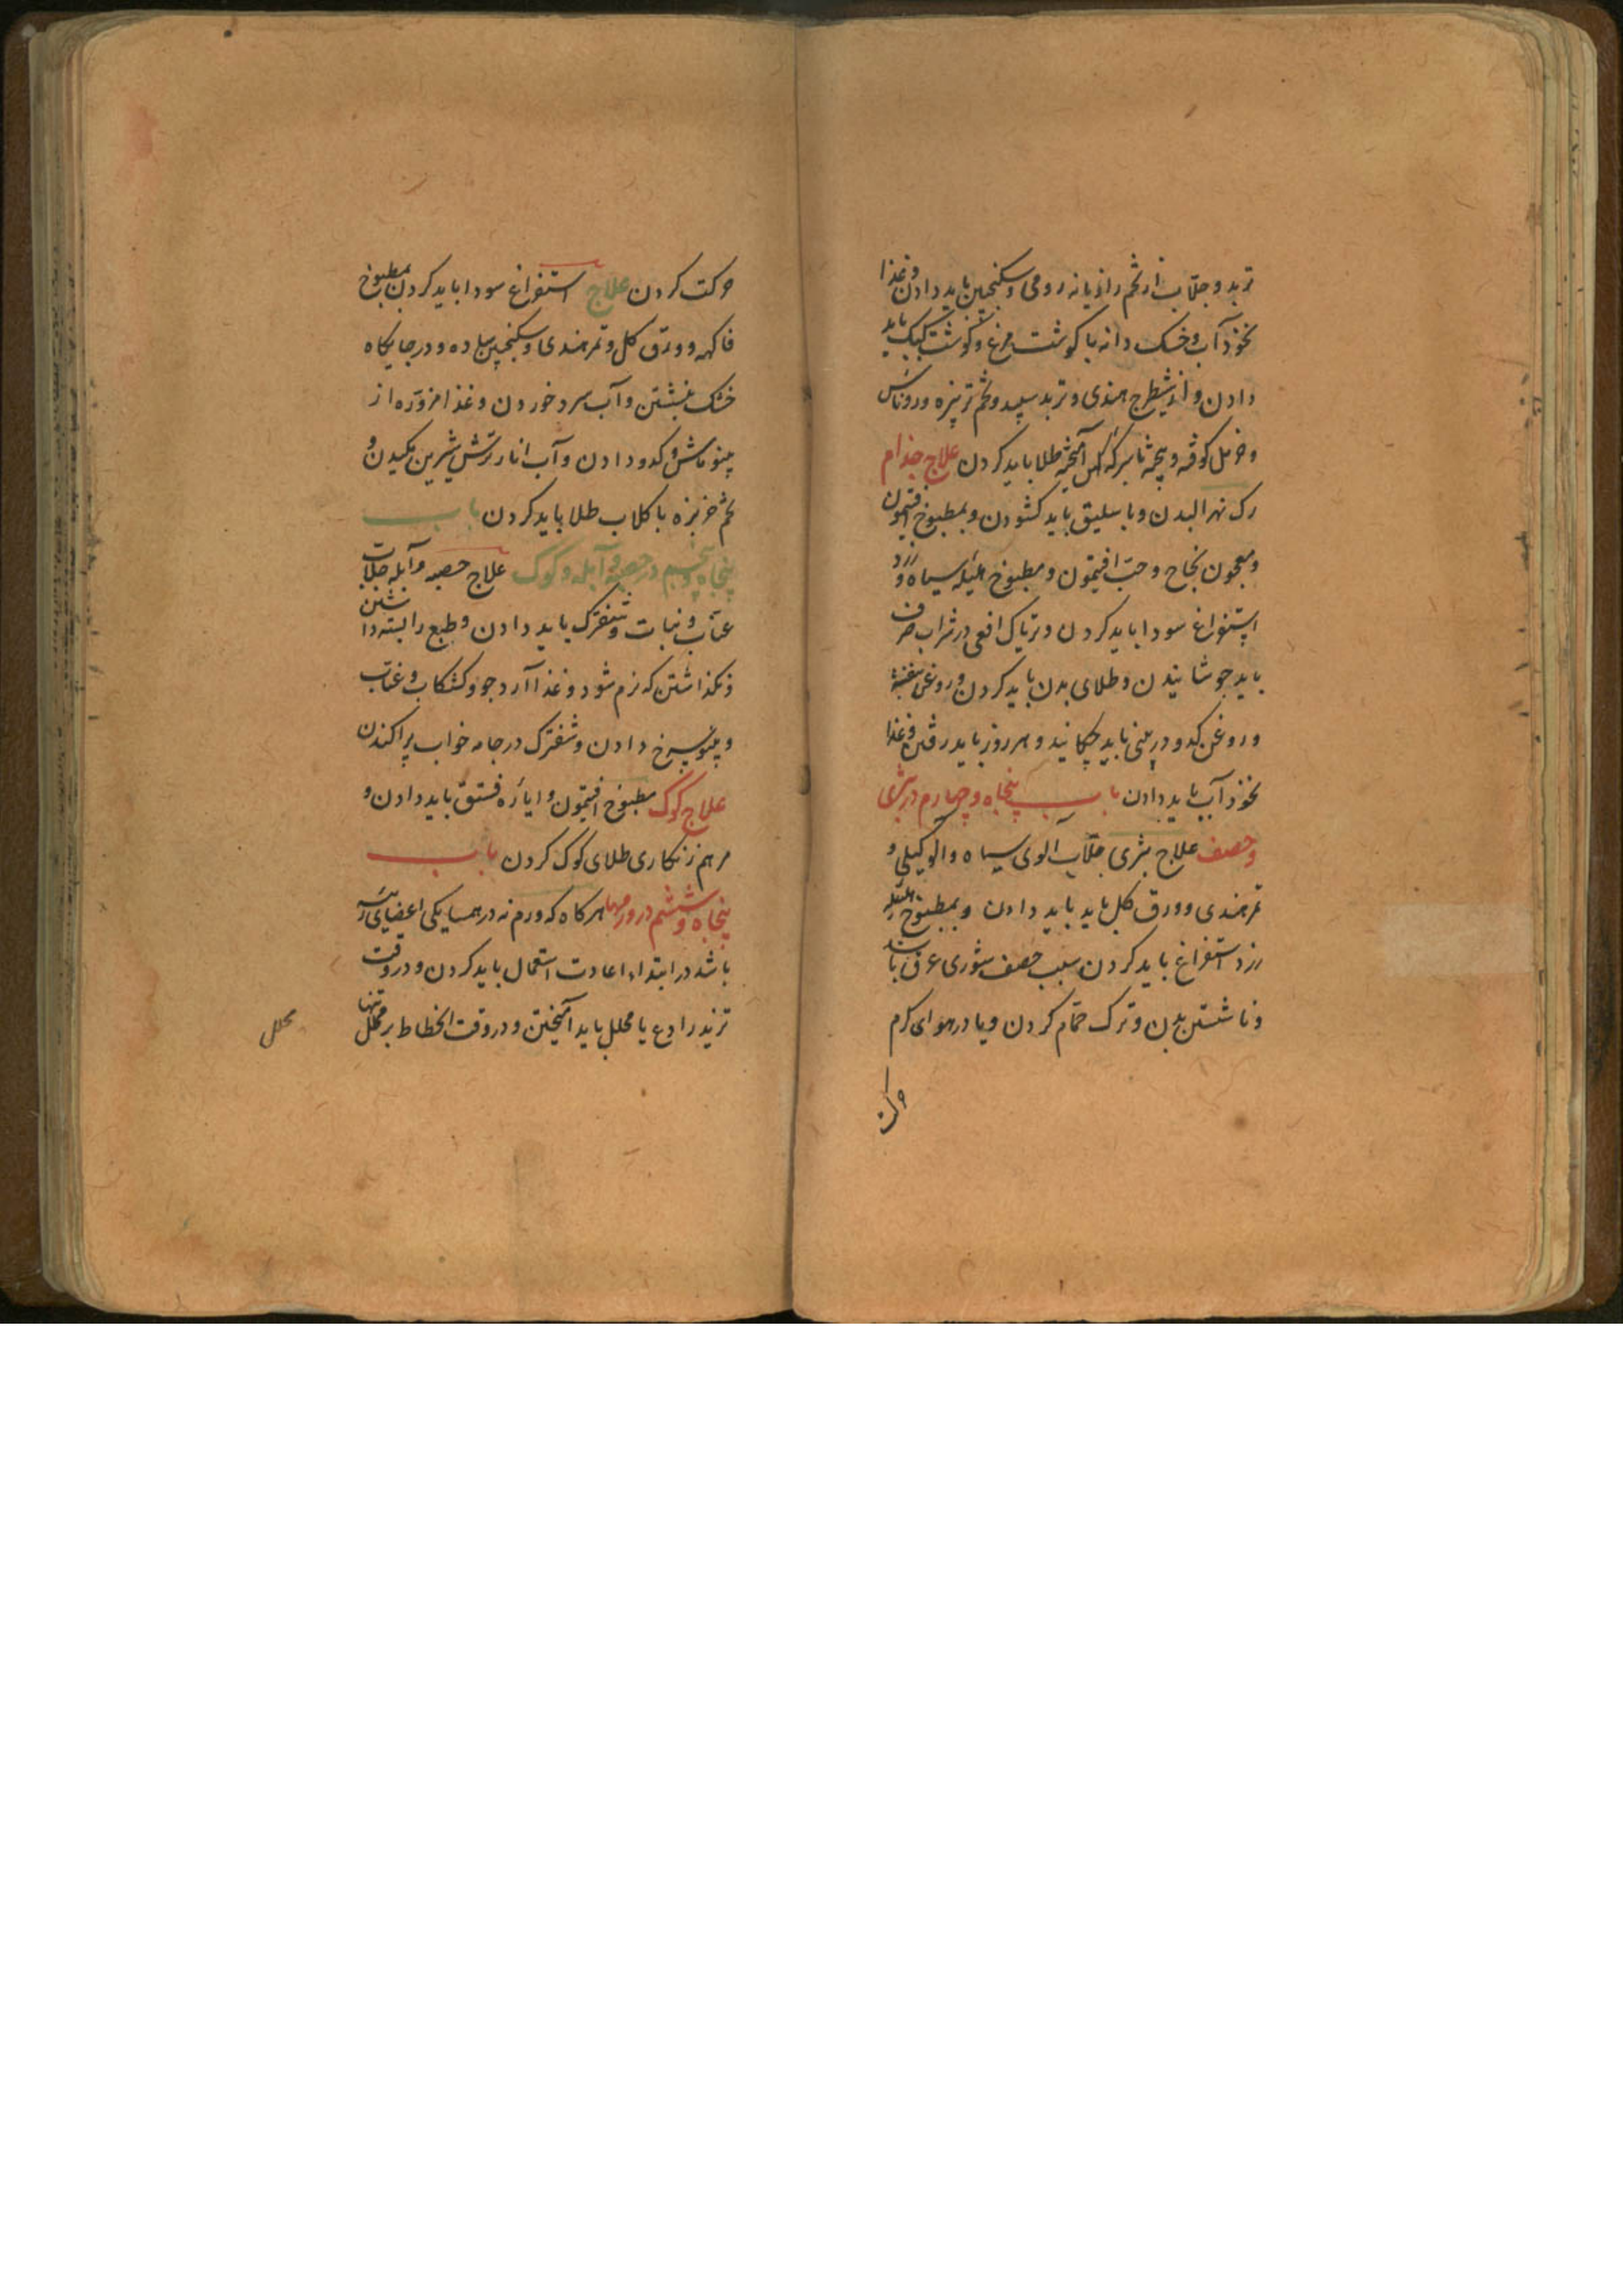 تربد و جلاب از تخم رازیانه رومی و سکنجبین باید دادن و غذا
نخود آب و خسک دانه با کوشت مرغ و کوشت کبک باید
دادن و از شیطرج هندی و تربد سپید و تخم ترتیزه و روناس
و خردل کوفته و پخته با سرکه آمیخته طلا باید کردن علاج جذام
رک نهر البدن و باسلیق باید کشودن و بمطبوخ افتیمون
و معجون نجاح و حب افتیمون و مطبوخ هلیله سیاه و زرد
استفراغ سودا باید کردن و تریاک افعی در شراب صرف
باید جوشانیدن و طلای بدن باید کردن و روغن بنفشه
و روغن کدو در بینی باید چکانید و هر روز باید رفتن و غذا
نخود آب باید دادن باب پنجاه و چهارم در شری
و حصف علاج شری جلاب الوی سیاه و الو کیلی و
تمر هندی و ورق کل باید باید دادن و بمطبوخ هلیله
زرد استفراغ باید کردن سبب حصف شوری عرق باشد
و ناشستن بدن و ترک حمام کردن و یا در هوای کرم
حرکت
حرکت کردن علاج استفراغ سودا باید کردن بمطبوخ
فاکهه و ورق کل و تمر هندی و سکنجبین ساده و در جایکاه
خنک نشستن و آب سرد خوردن و غذا مزوره از
پینو ماش و کدو دادن و آب انار ترش شیرین مکیدن و
تخم خربزه با کلاب طلا باید کردن باب
پنجاه و پنجم در حصبه و آبله و کوک علاج حصبه و آبله جلاب
عناب و نبات و شفترک باید دادن و طبع را بسته داشتن
و نکذاشتن که نرم شود و غذا آرد جو و کشکاب و عناب
و پینو سرخ دادن و شفترک در جامه خواب پراکندن
علاج کوک مطبوخ افتیمون و ایاره فستق باید دادن و
مرهم زنکاری طلای کوک کردن باب
پنجاه و ششم در ورمها هرکاه که ورم نه در همسایکی اعضای رئیسه
باشد در ابتدا اعادت استعمال باید کردن و در وقت
تزید رادع یا محلل باید آمیختن و در وقت انحطاط بر محلل تنها
محلل